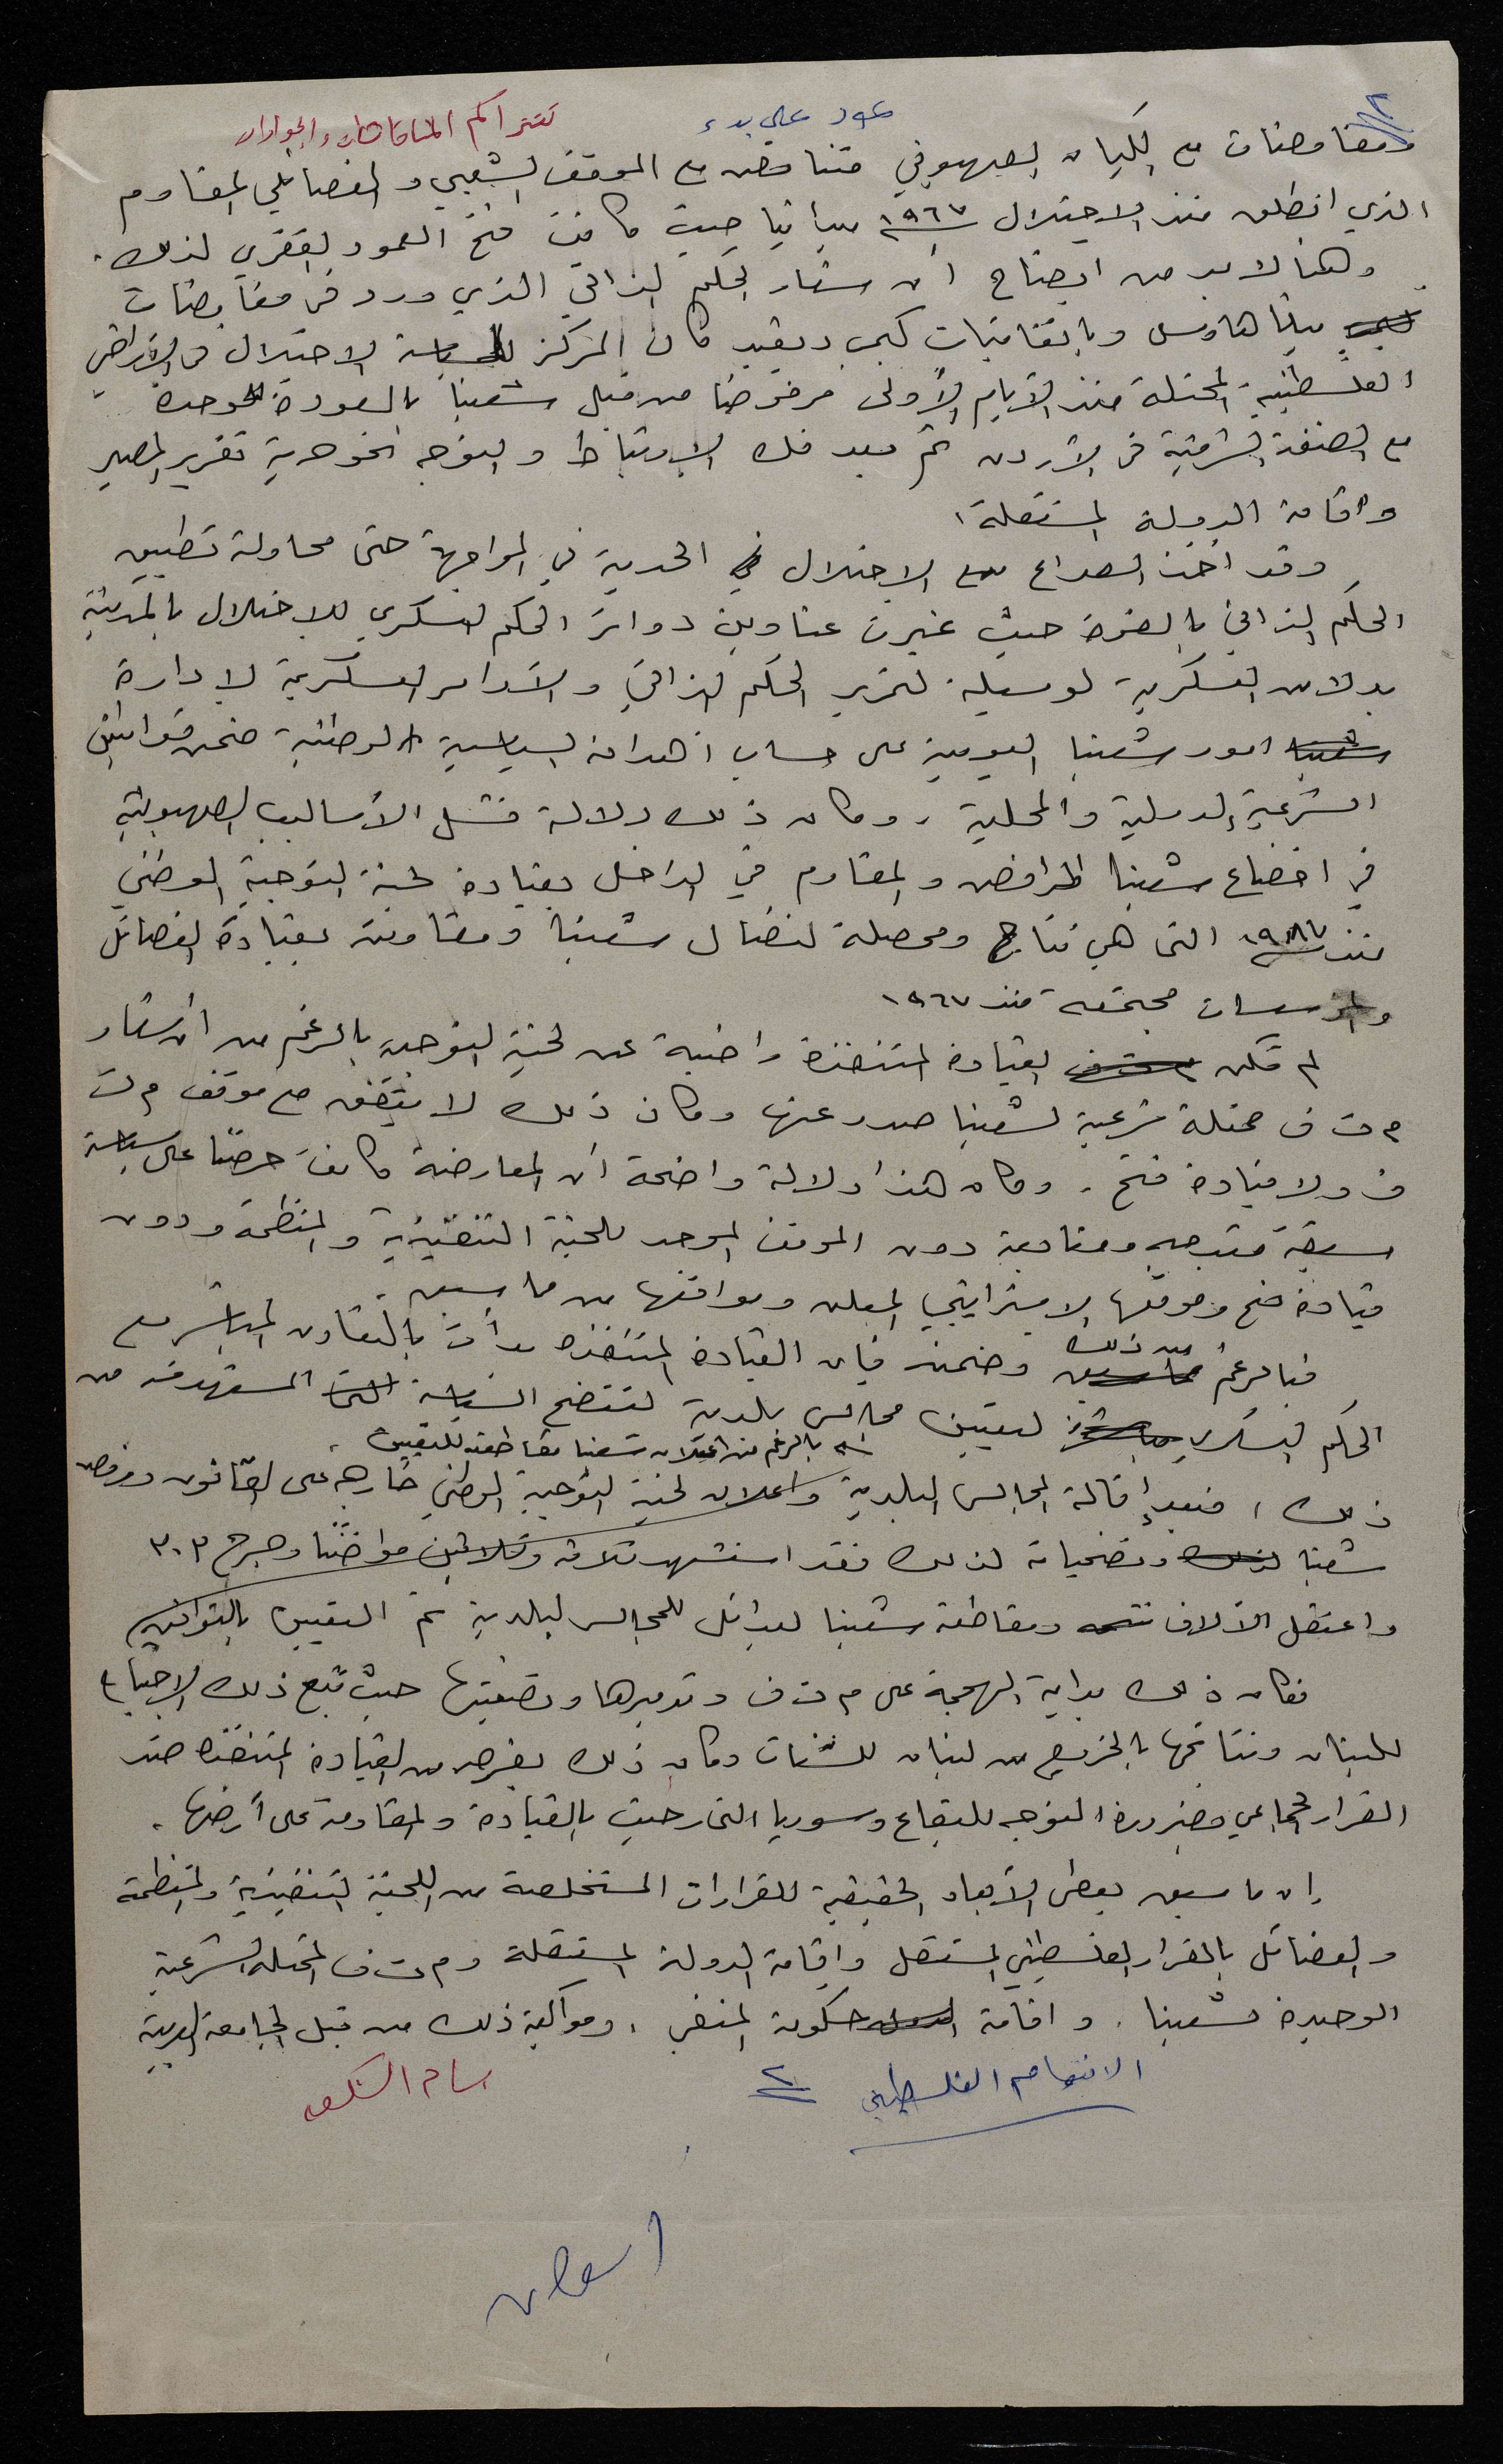 ٢
عود على بدء
تتراكم المناقصات والجوارات
ومفاوضات مع الكيان الصهيوني متناقض مع الموقف الشعبي والفصائلي المقاوم
الذي انطلق منذ الاحتلال ١٩٦٧ ميدانيا حيث كانت فتح العمود الفقري لذلك.
وهنا لابد من ايضاح أن ستار الحكم الذاتي الذي ورد في مفاوضات
مينا هاوس وباتفاقيات كمب ديفيد كان المركز لسياسة الاحتلال في الأراضي
الفلسطينية المحتلة منذ الأيام الأولى مرفوضا من قبل شعبنا بالعودة للوحدة
مع الضفة الشرقية في الأردن ثم بعد فك الارتباط والتوجه نحو حرية تقرير المصير
واقامة الدولة المستقلة.
وقد اخذ الصراع مع الاحتلال الجدية في المواجهة حتى محاولة تطبيق
الحكم الذاتي بالقوة حيث غيرت عناوين دوائر الحكم العسكري للاحتلال بالمدنية
بدلا من العسكرية لوسيلة لتمرير الحكم الذاتي والأوامر العسكرية لادارة
امور شعبنا اليومية على حساب أهدافه السياسية الوطنية ضمن قوانين
الشرعية الدولية والمحلية. وكان ذلك دلالة فشل الأساليب الصهيونية
في اخضاع شعبنا الرافض والمقاوم في الداخل بقيادة لجنة التوجيه الوطني
منذ التي هي نتاج ومحصلة لنضال شعبنا ومقاومته بقيادة الفصائل
والمؤسسات مجتمعة منذ ١٩٦٧
لم تكن القيادة المتنفذة راضية عن لجنة التوجيه بالرغم من أن ستار
م ت ف ممثلة شرعية لشعبنا صدر عنها وكان ذلك لا يتفق مع موقف م ت
ف ولا قيادة فتح. وكان هذا دلالة واضحة أن المعارضة كانت حرصًا على سياسة
مسبقة دون الموقف الموحد للجنة التنفيذية والمنظمة ودون
قيادة فتح وموقفها الاستراتيجي المعلن ومواقفها من ما سبق.
فبالرغم من ذلك وضمنه فإن القيادة المتنفذة بدأت بالتعاون المباشر مع
الحكم العسكري لتعيين مجالس بلدية لتتضح السياسة المستهدفة من
بالرغم من اعلان شعبنا مقاطعته للتعيين.
ذلك، فبعد إقالة المجالس البلدية واعلان لجنة التوجيه الوطني خارجه على القانون ورفض
شعبنا وتضحياته لذلك فقد استشهد ثلاثة وثلاثين مواطنًا وجرح ٣٠٣
واعتقل الآلاف ومقاطعة شعبنا لبدائل للمجالس البلدية تم التعيين بالتوافق
فكان ذلك بداية الهجمة على م ت ف وتدميرها وتصفيتها حيث تبع ذلك الاجتياح
للبنان ونتائجها بالخروج من لبنان للشتات وكان ذلك بفرض من القيادة المتنفذة ضد
القرار الجماعي وضرورة التوجه للبقاع وسوريا التي رحبت بالقيادة والمقاومة على أرضها.
إن ما سبق بعض الأبعاد الحقيقية للقرارات المستخلصة من اللجنة التنفيذية والمنظمة
والفصائل بالقرار الفلسطيني المستقل وإقامة الدولة المستقلة و م ت ف الممثلة الشرعية
الوحيدة لشعبنا. واقامة حكومة المنفى. ومواكبة ذلك من قبل الجامعة العربية
الانقسام الفلسطيني ٢
بسام الشكعة